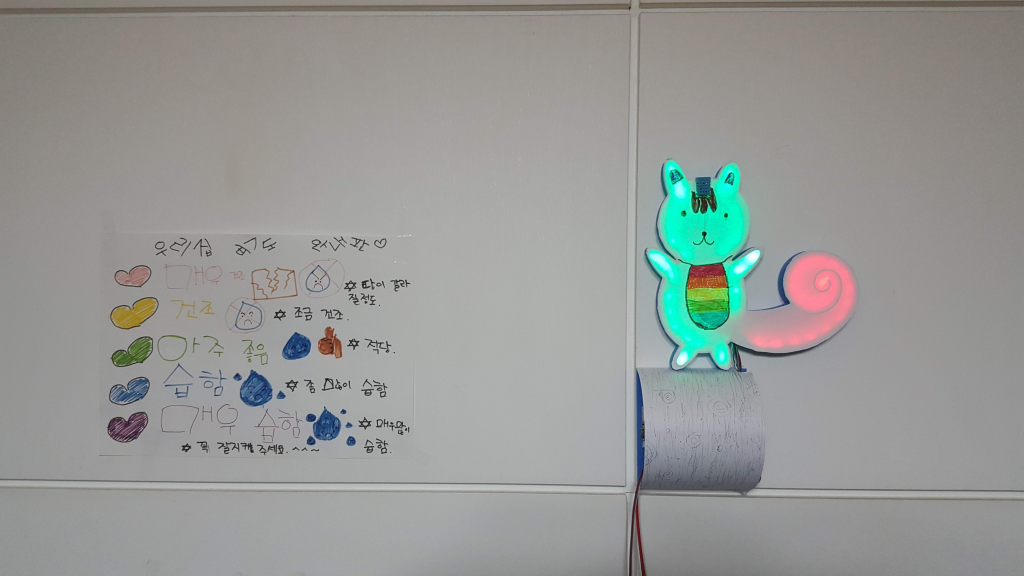 매우
☆ 땅이 갈라
질정도.
건조 ☆ 조금 건조.
아주 좋음 ☆ 적당.
습함 ☆ 좀 많이 습함
매우 습함 ☆ 매우많이
습함.
☆ 꼭 잘지켜 주세요. ^^~